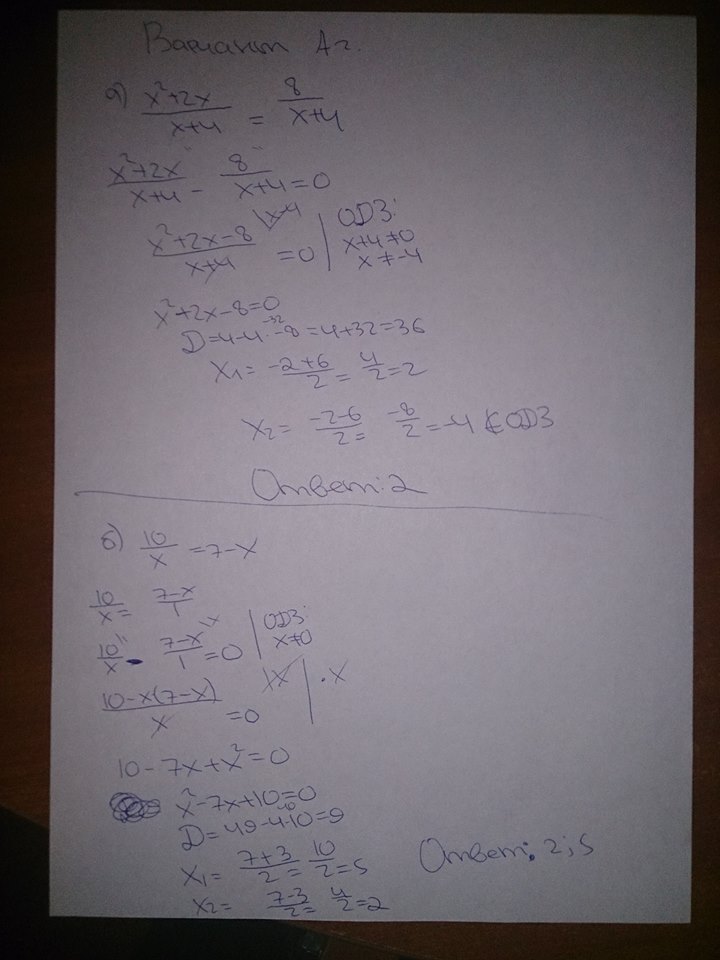 Вариант А2.
а) (x²+2x)/(x+4) = 8/(x+4)
(x²+2x)/(x+4) - 8/(x+4) = 0
(x²+2x-8)/(x+4) = 0 | ОДЗ:
x+4≠0
x≠-4
x²+2x-8=0
D=4-4·-8=4+32=36
x₁= (-2+6)/2 = 4/2 = 2
x₂= (-2-6)/2 = -8/2 = -4 ∉ ОДЗ
Ответ: 2
б) 10/x = 7-x
10/x = (7-x)/1
10/x - (7-x)/1 = 0 | ОДЗ:
x≠0
(10-x(7-x))/x = 0 | ·x
10-7x+x²=0
x²-7x+10=0
D=49-4·10=9
x₁= (7+3)/2 = 10/2 = 5
x₂= (7-3)/2 = 4/2 = 2
Ответ: 2;5